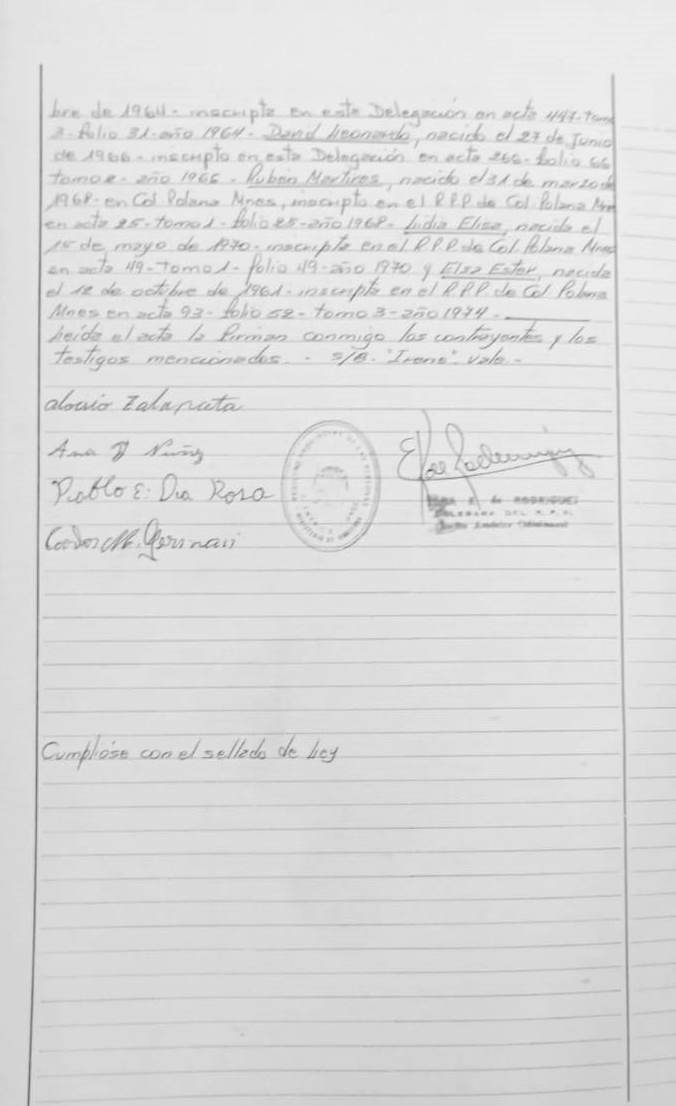 bre de 1964 - inscripta en esta Delegación en acta 447 - tomo
3 - folio 31 - año 1964 - David Leonardo, nacido el 27 de Junio
de 1966 - inscripto en esta Delegación en acta 266 - folio 66
tomo 2 - año 1966 - Ruben Martires, nacido el 31 de marzo de
1968 - en Col Polana Mnes, inscripto en el R.P.P de Col. Polana Mnes
en acta 25 - tomo 1 - folio 25 - año 1968 - Lidia Elisa, nacida el
15 de mayo de 1970 - inscripta en el R.P.P. de Col. Polana Mnes
en acta 49 - tomo 1 - folio 49 - año 1970 y Elsa Ester, nacida
el 12 de octubre de 1961 - inscripta en el R.P.P. de Col Polana
Mnes en acta 93 - folio 52 - tomo 3 - año 1974 -
Leída el acta la firman conmigo los contrayentes y los
testigos mencionados. - S/B. "Irene". Vale -
Ana Nuñez
Pablo E. Da Rosa
E. de RODRIGUEZ
DELEGADA DEL R.P.P.
Cumpliose con el sellado de Ley